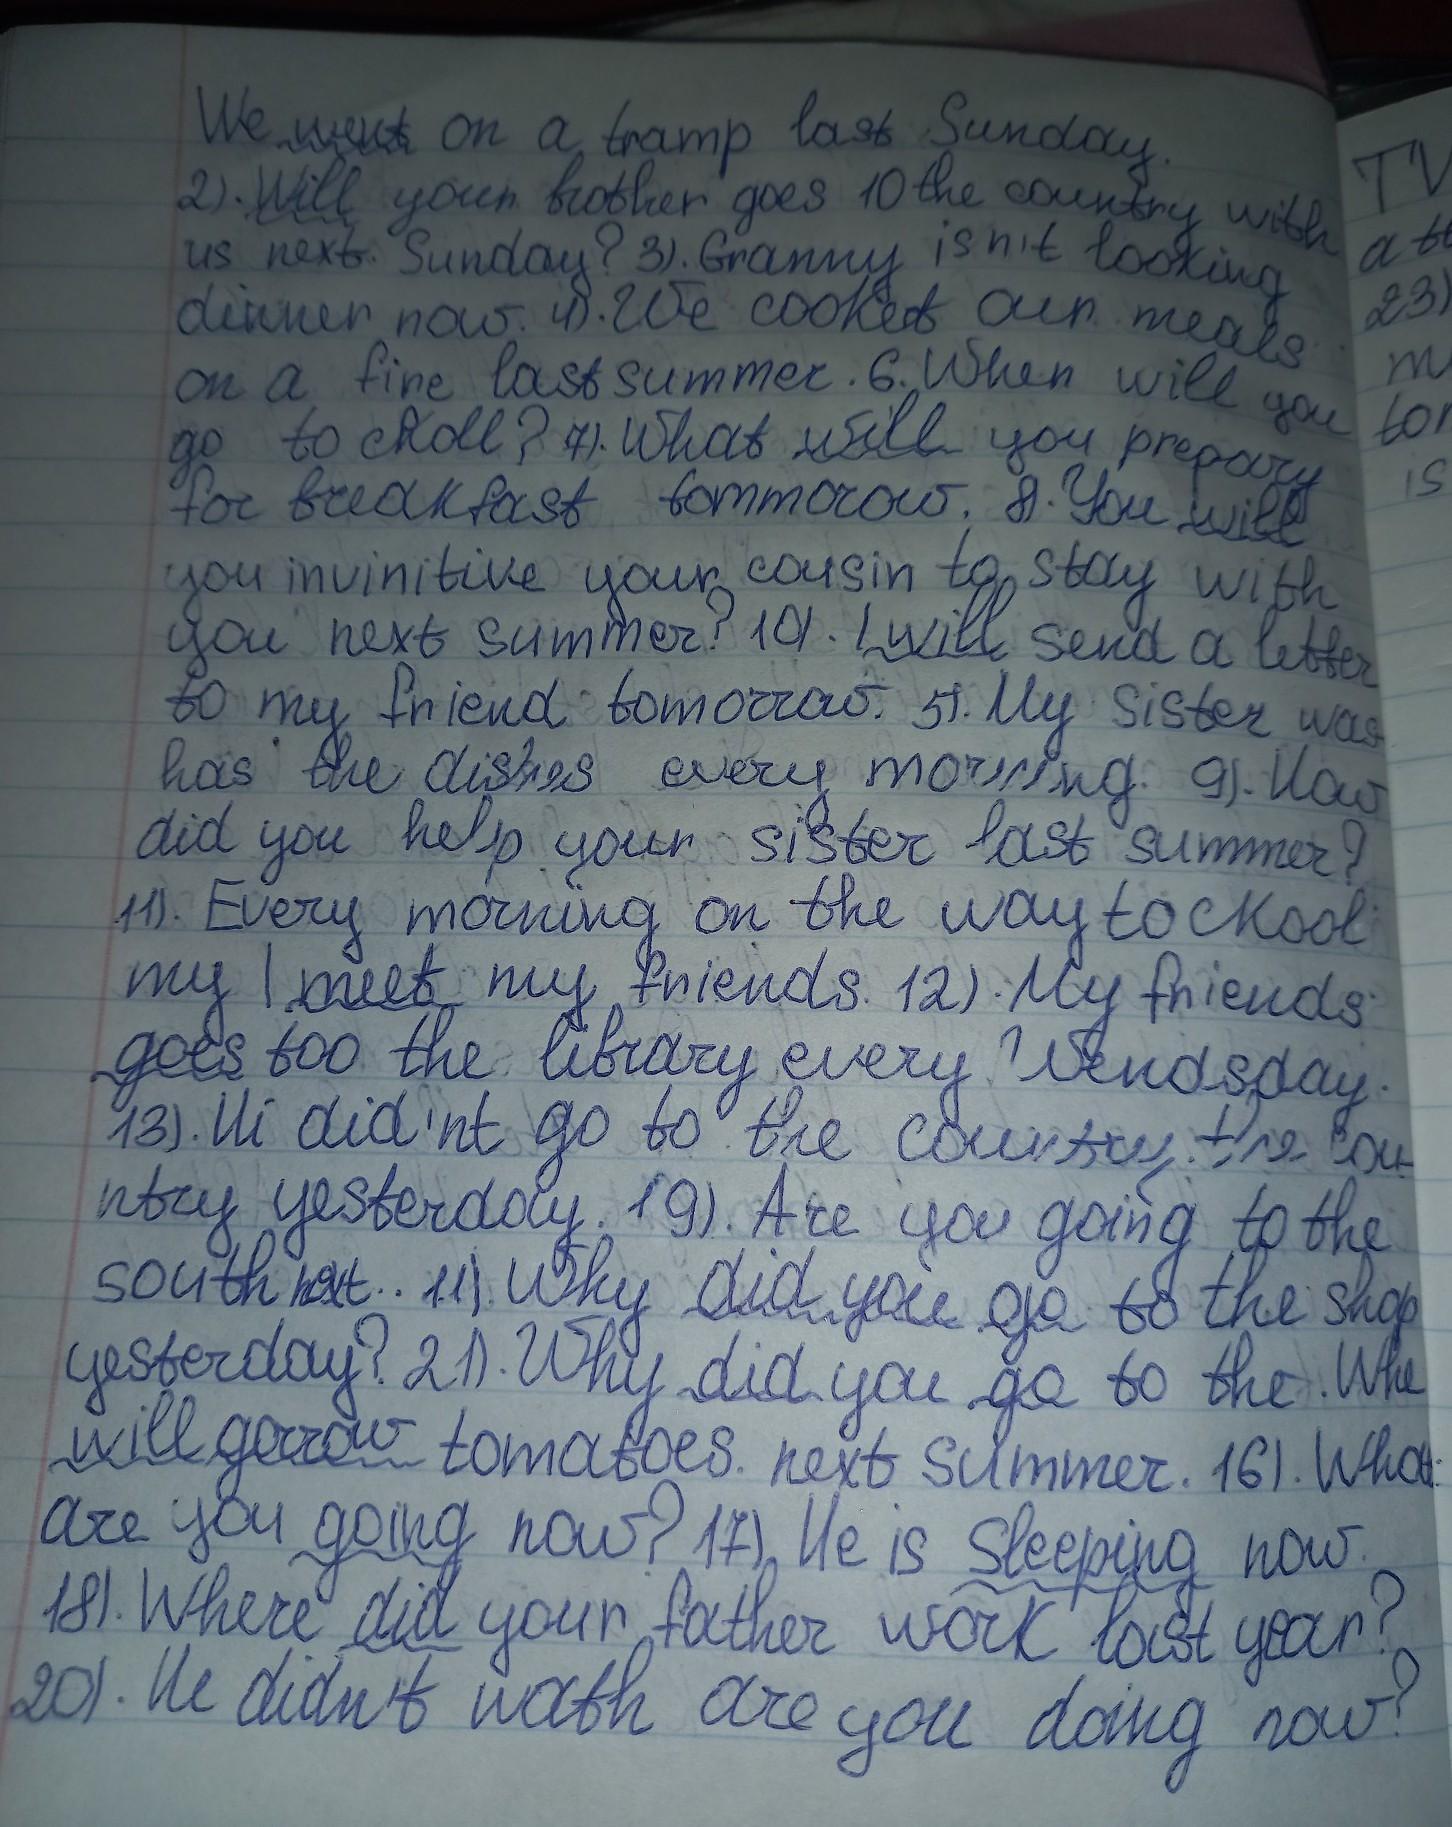 We went on a tramp last Sunday.
2). Will your brother goes 10 the country with
us next Sunday? 3). Granny isn't looking
dinner now. 4). We cooket our meals
on a fire last summer. 6. When will you
go to ckoll? 7). What will you prepary
for breakfast tommorow. 8). You will
you invinitive your cousin to stay with
you next summer? 10). I will send a letter
to my friend tomorrow. 5). My sister was
has the dishes every morning. 9). How
did you help your sister last summer?
11). Every morning on the way to ckool
my I meet my friends. 12). My friends
goes too the library every Wendsday.
13). Hi did'nt go to the country the cou-
ntry yesterday. 19). Are you going to the
south next.. 11). Why did you go to the shop
yesterday? 21). Why did you go to the. Whe
will gorrow tomatoes next summer. 16). What
are you going now? 17). He is sleeping now.
18). Where did your father work last year?
20). He didn't wath are you doing now?
TV
att
23)
m
tor
is